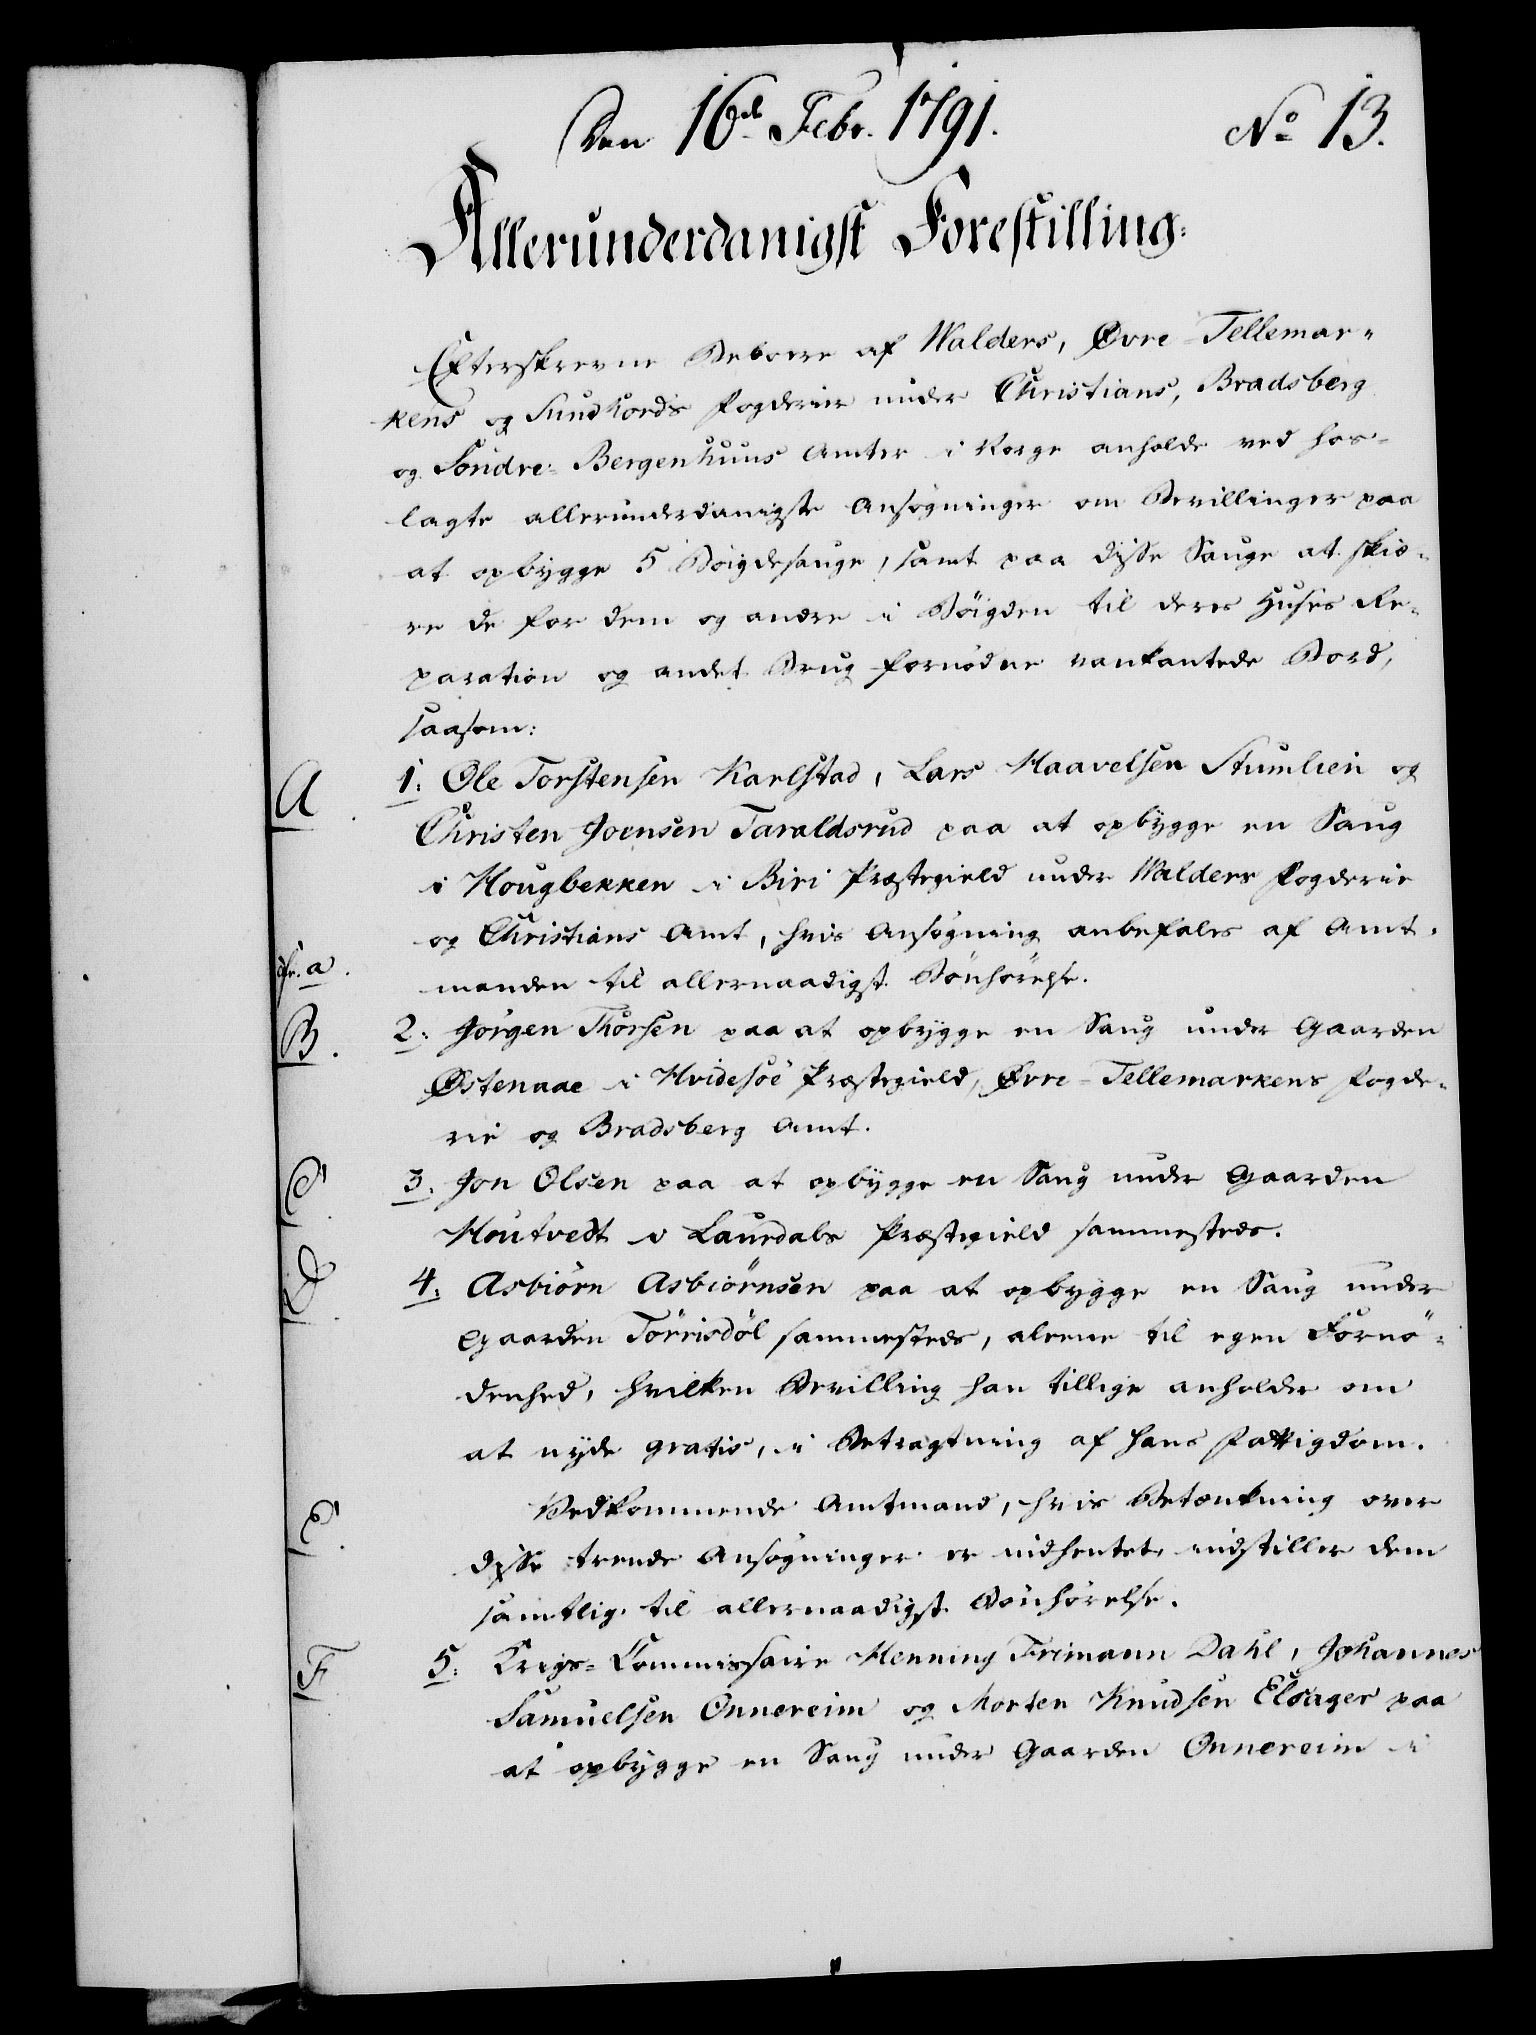 Den 16de Febr. 1791. No 13.
Allerunderdanigst Forestilling:
Efterskrevne Beboere af Walders, Øvre-Tellemar-
kens og Sundhords Fogderier under Christians, Bradsberg
og Söndre-Bergenhuus Amter i Norge anholde ved hos-
lagte allerunderdanigste Ansøgninger om Bevillinger paa
at opbygge 5 Böigdesauge, samt paa disse Sauge at skiæ-
re de for dem og andre i Böigden til deres Huses Re-
paration og andet Brug fornødne vankantede Bord,
saasom:
A 1. Ole Torstensen Karlstad, Lars Haavelsen Stumlien og
Christen Joensen Taraldsrud paa at opbygge en Saug
i Hougbekken i Biri Præstegield under Walders Fogderie
og Christians Amt, hvis Ansøgning anbefales af Amt-
cfr. a. manden til allernaadigst Bönhörelse.
B. 2. Jörgen Thorsen paa at opbygge en Saug under Gaarden
Østenaae i Hvidesöe Præstegield, Øvre-Tellemarkens Fogde-
rie og Bradsberg Amt.
C. 3. Jon Olsen paa at opbygge en Saug under Gaarden
Houtvedt i Laurdals Præstegield sammesteds.
D. 4. Asbiörn Asbiörnsen paa at opbygge en Saug under
Gaarden Törrisdöl sammesteds, aleene til egen Fornö-
denhed, hvilken Bevilling han tillige anholder om
at nyde gratis, i Betragtning af hans Fattigdom.
E. Vedkommende Amtmand, hvis Betænkning over
disse trende Ansøgninger er indhentet, indstiller dem
samtlig til allernaadigst Bönhörelse.
F 5. Krigs-Commissaire Henning Frimann Dahl, Johannes
Samuelsen Onnereim og Morten Knudsen Elsager paa
at opbygge en Saug under Gaarden Onnereim i